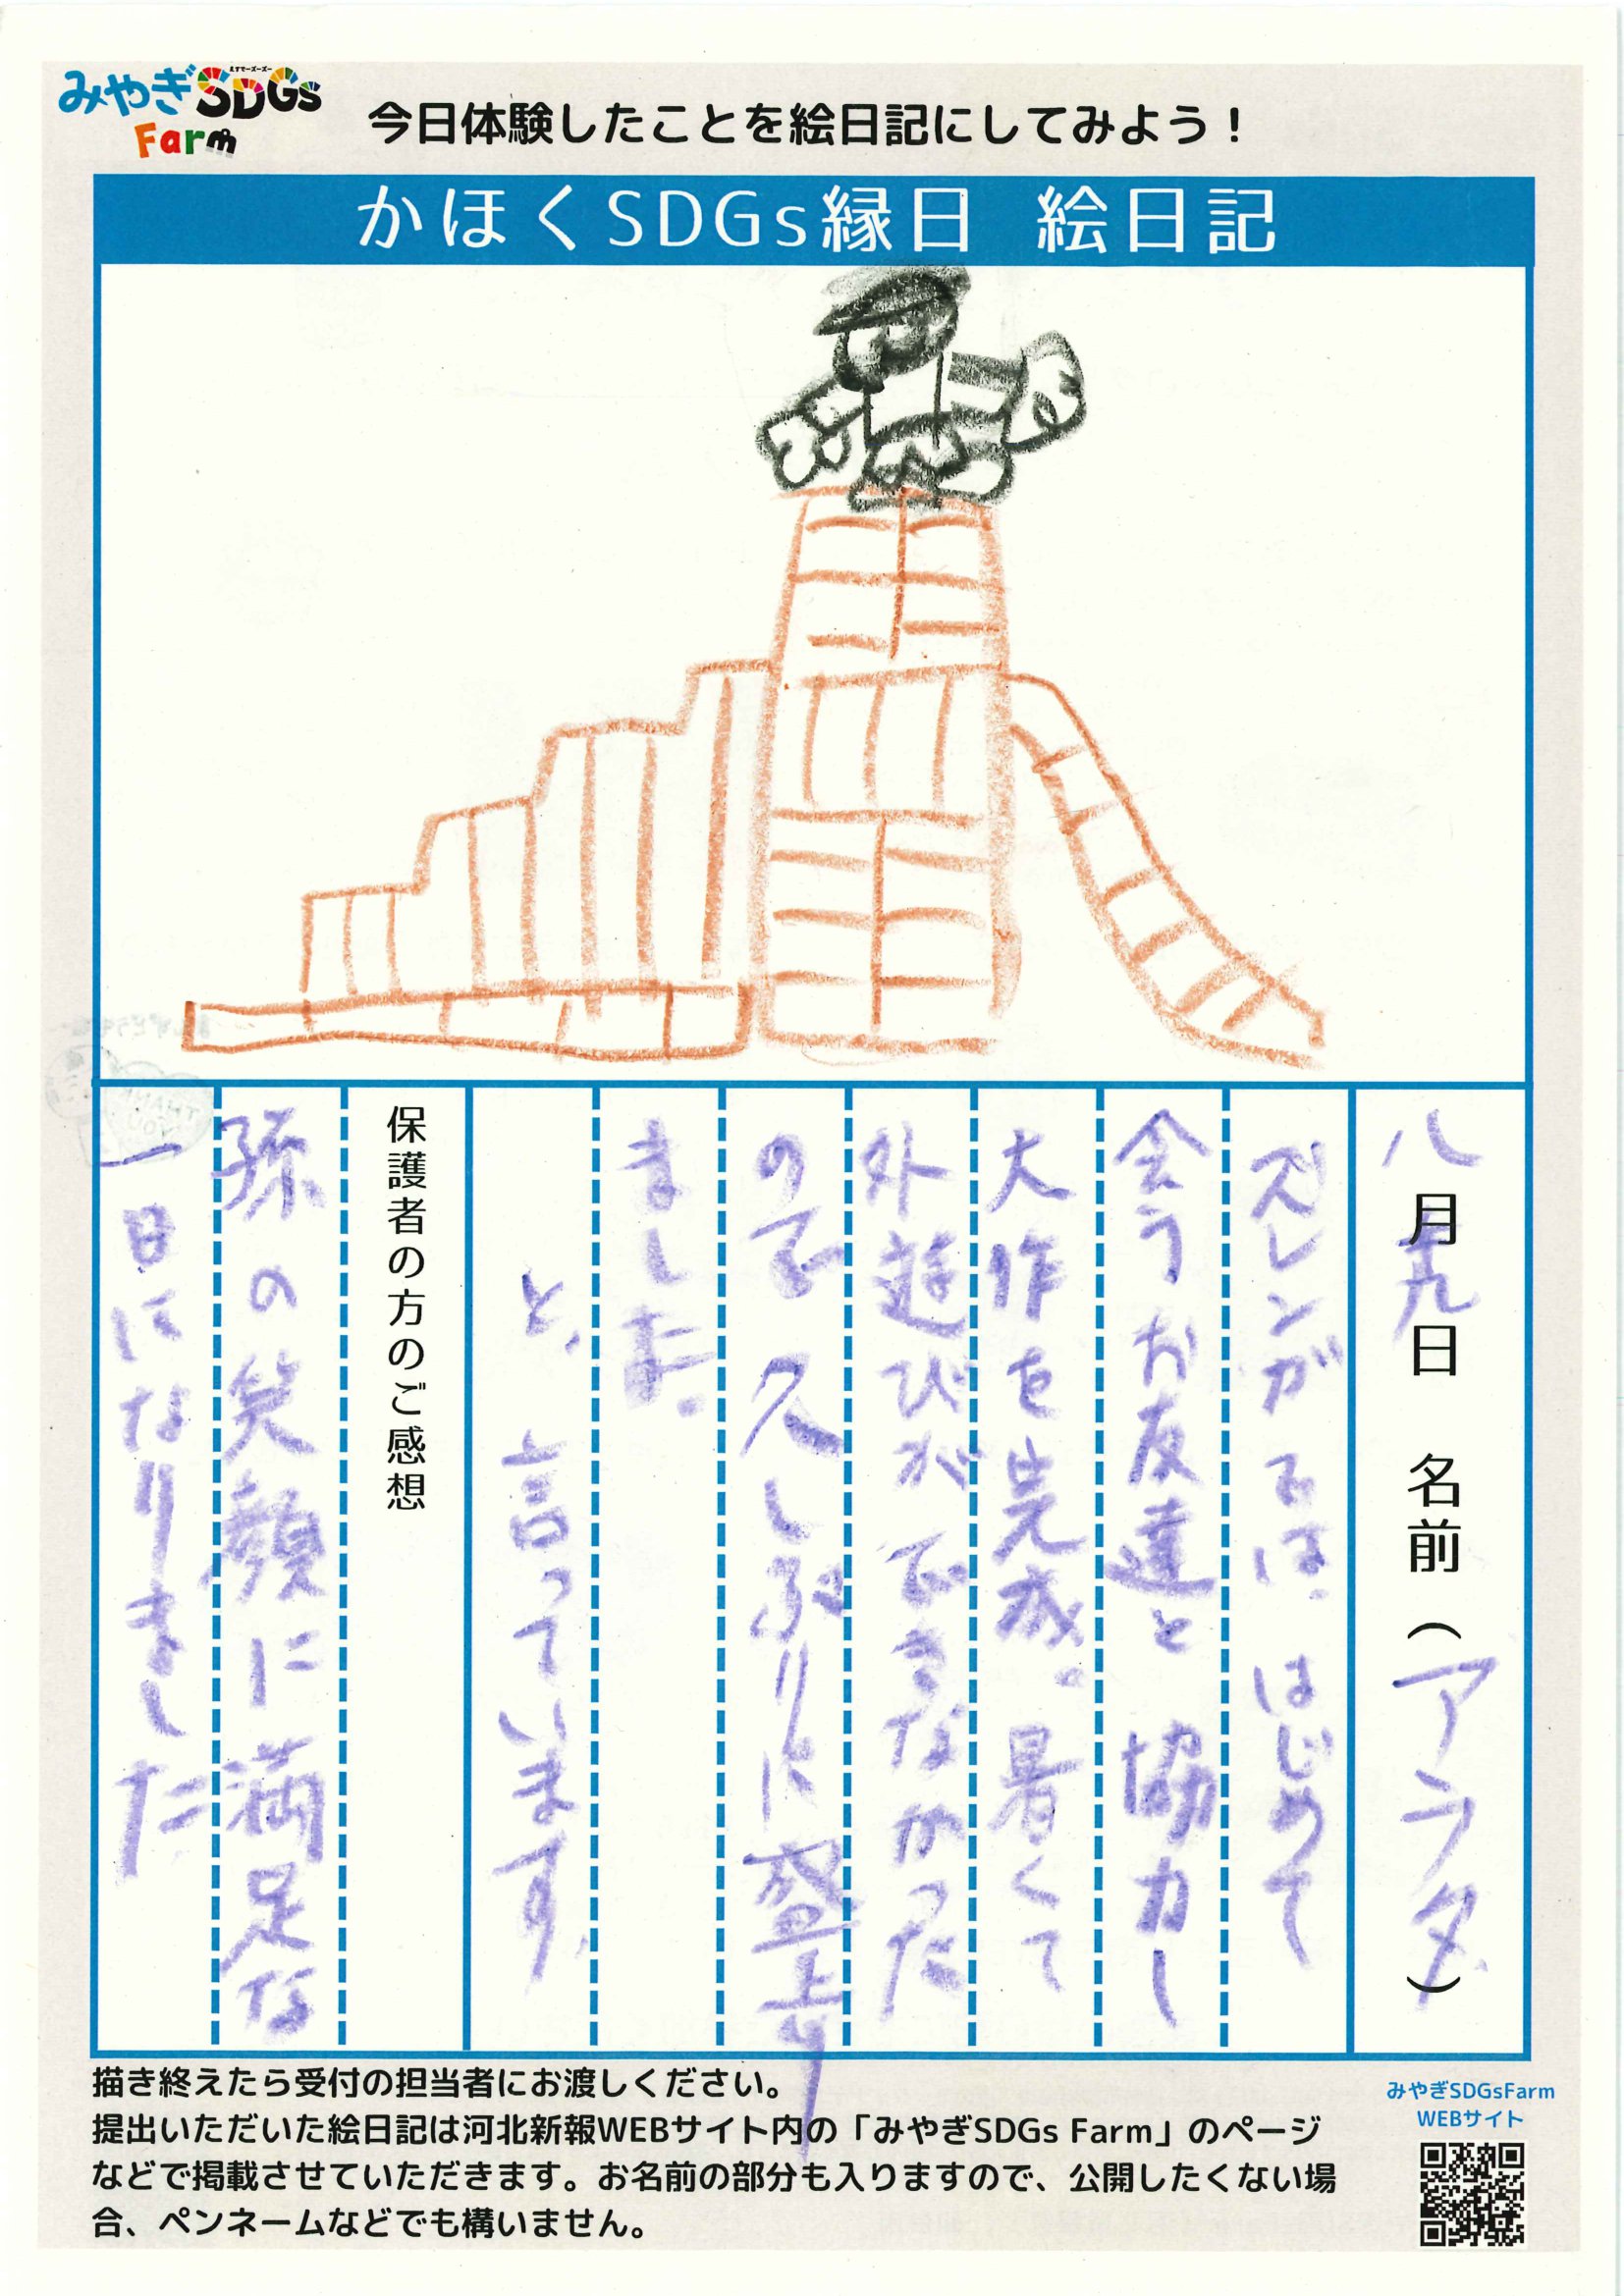 みやぎSDGs
えすでーじーずー
Farm
今日体験したことを絵日記にしてみよう！
かほくSDGs縁日 絵日記
八月十九日 名前（アラタ）
ズレンガでは、はじめて
会うお友達と 協力し
大作を完成。暑くて
外遊びができなかった
ので 久しぶりに盛上り
ました。
と、言っています。
保護者の方のご感想
孫の笑顔に満足な
一日になりました
描き終えたら受付の担当者にお渡しください。
提出いただいた絵日記は河北新報WEBサイト内の「みやぎSDGs Farm」のページ
などで掲載させていただきます。お名前の部分も入りますので、公開したくない場
合、ペンネームなどでも構いません。
みやぎSDGsFarm
WEBサイト